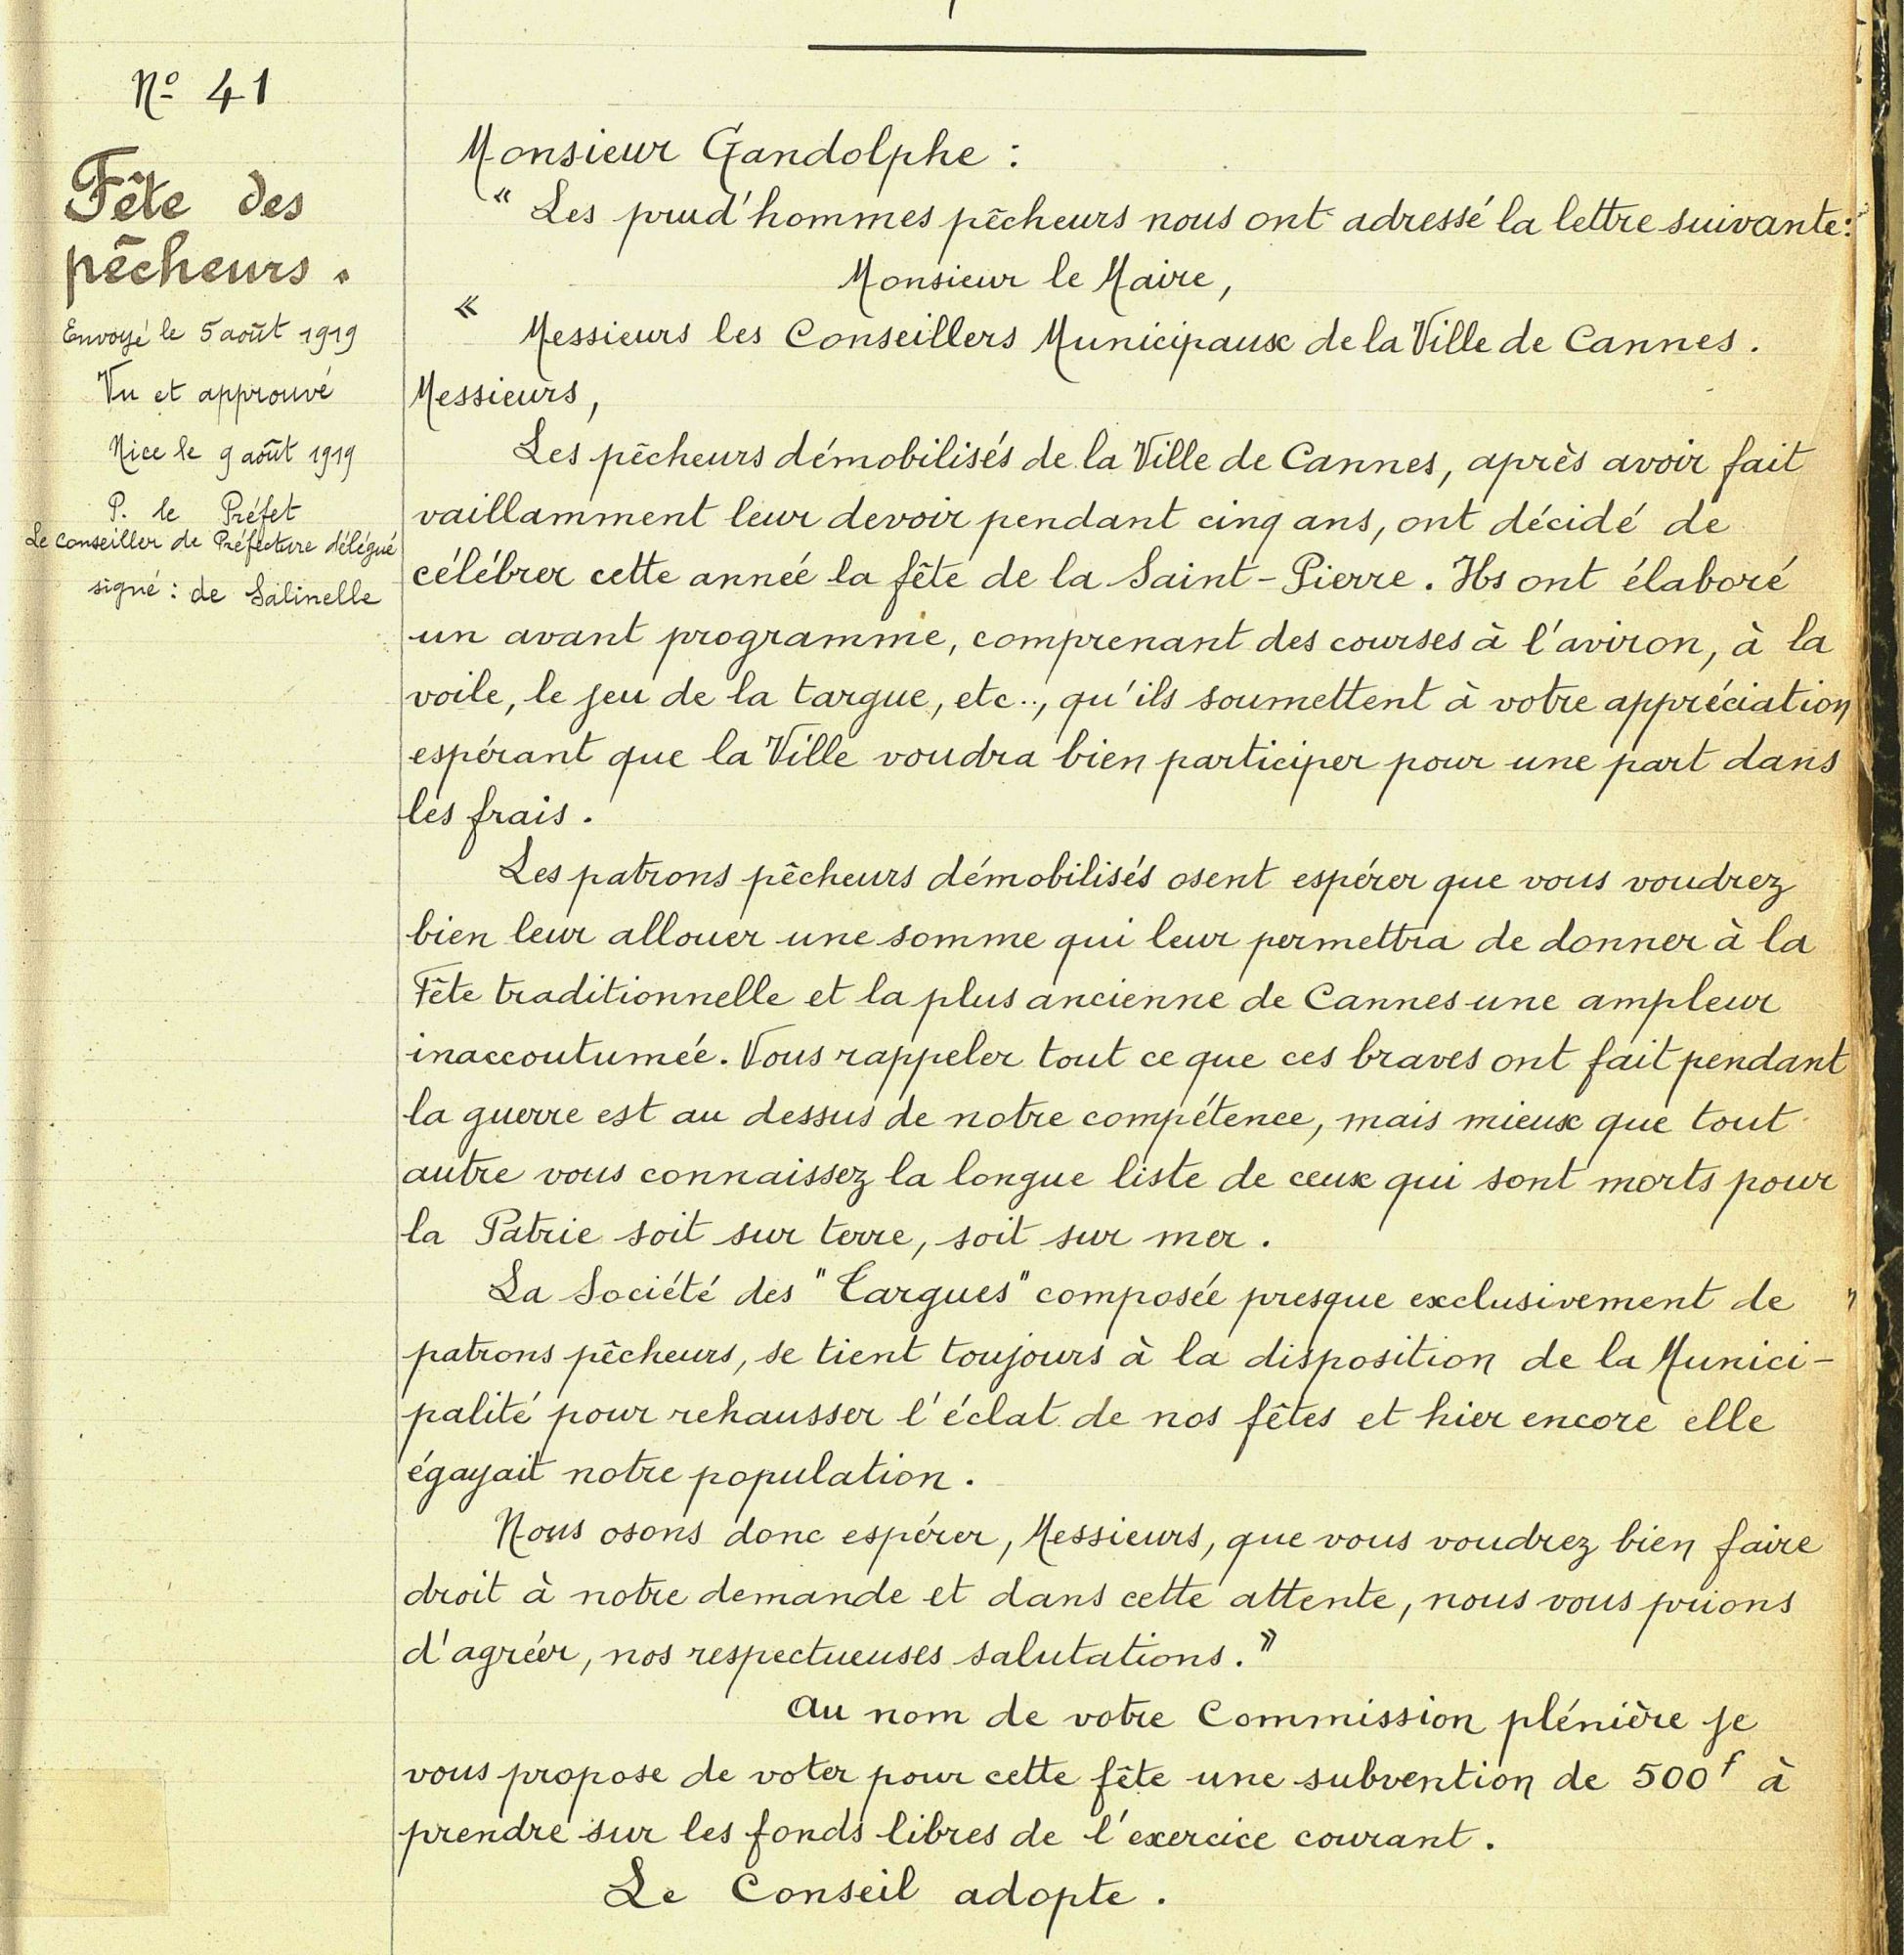 Nº 41
Fête des
pêcheurs.
Envoyé le 5 août 1919
Vu et approuvé
Nice le 9 août 1919
P. le Préfet
Le Conseiller de Préfecture délégué
signé : de Salinelle
Monsieur Gandolphe :
" Les prud'hommes pêcheurs nous ont adressé la lettre suivante :
Monsieur le Maire,
«
Messieurs les Conseillers Municipaux de la Ville de Cannes.
Messieurs,
Les pêcheurs démobilisés de la Ville de Cannes, après avoir fait
vaillamment leur devoir pendant cinq ans, ont décidé de
célébrer cette année la fête de la Saint-Pierre. Ils ont élaboré
un avant programme, comprenant des courses à l'aviron, à la
voile, le jeu de la targue, etc.., qu'ils soumettent à votre appréciation
espérant que la Ville voudra bien participer pour une part dans
les frais.
Les patrons pêcheurs démobilisés osent espérer que vous voudrez
bien leur allouer une somme qui leur permettra de donner à la
Fête traditionnelle et la plus ancienne de Cannes une ampleur
inaccoutumée. Vous rappeler tout ce que ces braves ont fait pendant
la guerre est au dessus de notre compétence, mais mieux que tout
autre vous connaissez la longue liste de ceux qui sont morts pour
la Patrie soit sur terre, soit sur mer.
La Société des "Targues" composée presque exclusivement de
patrons pêcheurs, se tient toujours à la disposition de la Munici-
palité pour rehausser l'éclat de nos fêtes et hier encore elle
égayait notre population.
Nous osons donc espérer, Messieurs, que vous voudrez bien faire
droit à notre demande et dans cette attente, nous vous prions
d'agréer, nos respectueuses salutations. »
Au nom de votre Commission plénière je
vous propose de voter pour cette fête une subvention de 500f à
prendre sur les fonds libres de l'exercice courant.
Le Conseil adopte.